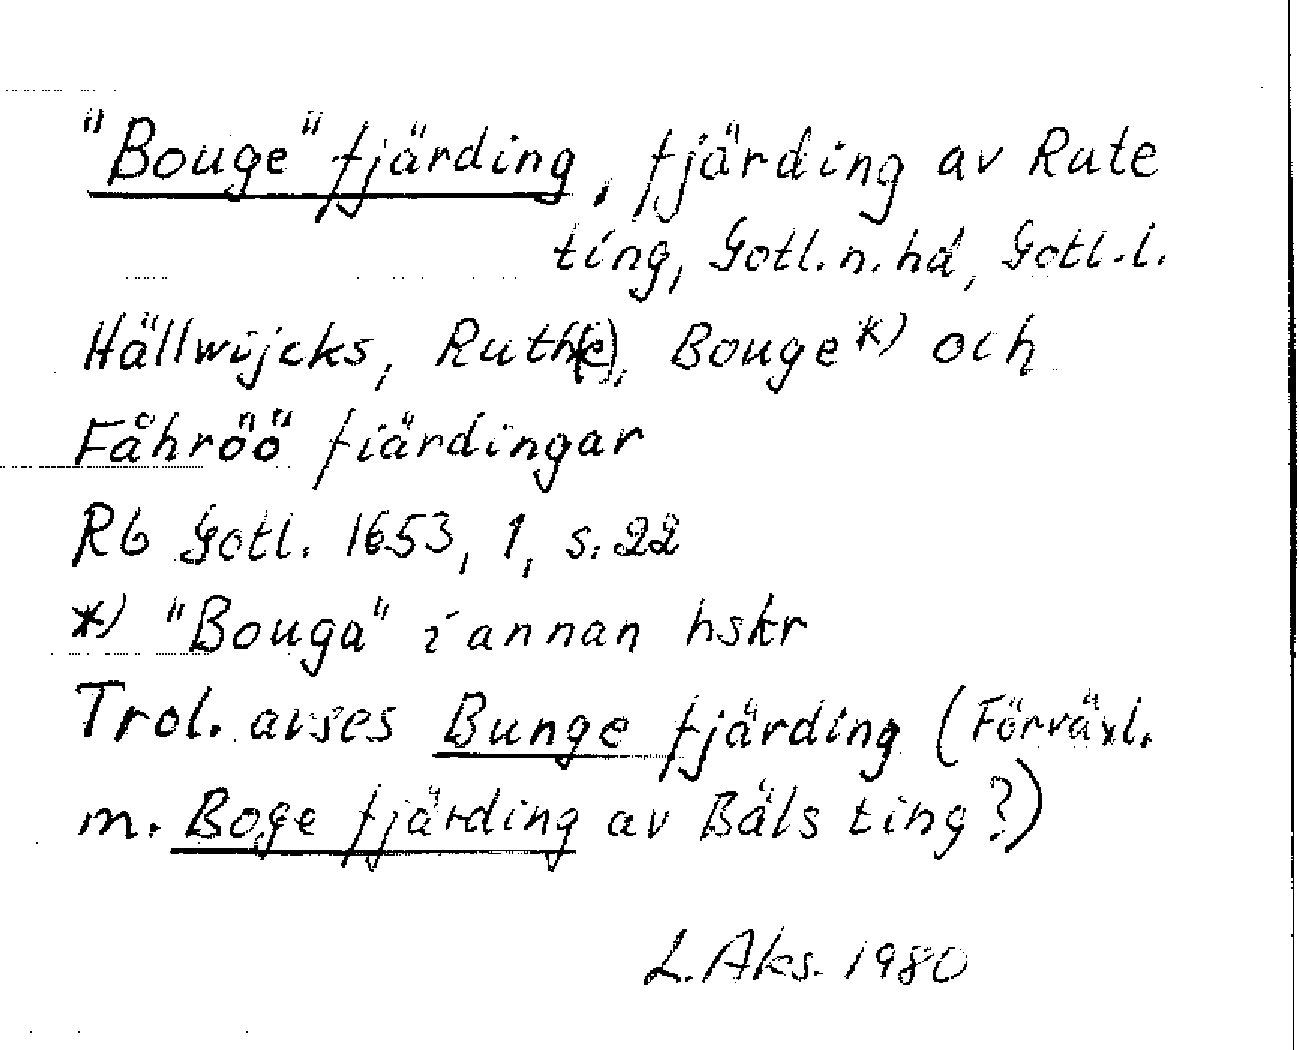 "Bouge" fjärding, fjärding av Rute
ting, Gotl. n. hd, Gotl. l.
Hällwijcks, Ruth(e), Bouge*) och
Fåhröö fiärdingar
Rb Gotl. 1653, 1, s. 22
*) "Bouga" i annan hskr
Trol. avses Bunge fjärding (Förväxl.
m. Boge fjärding av Bäls ting?)
L. Aks. 1980